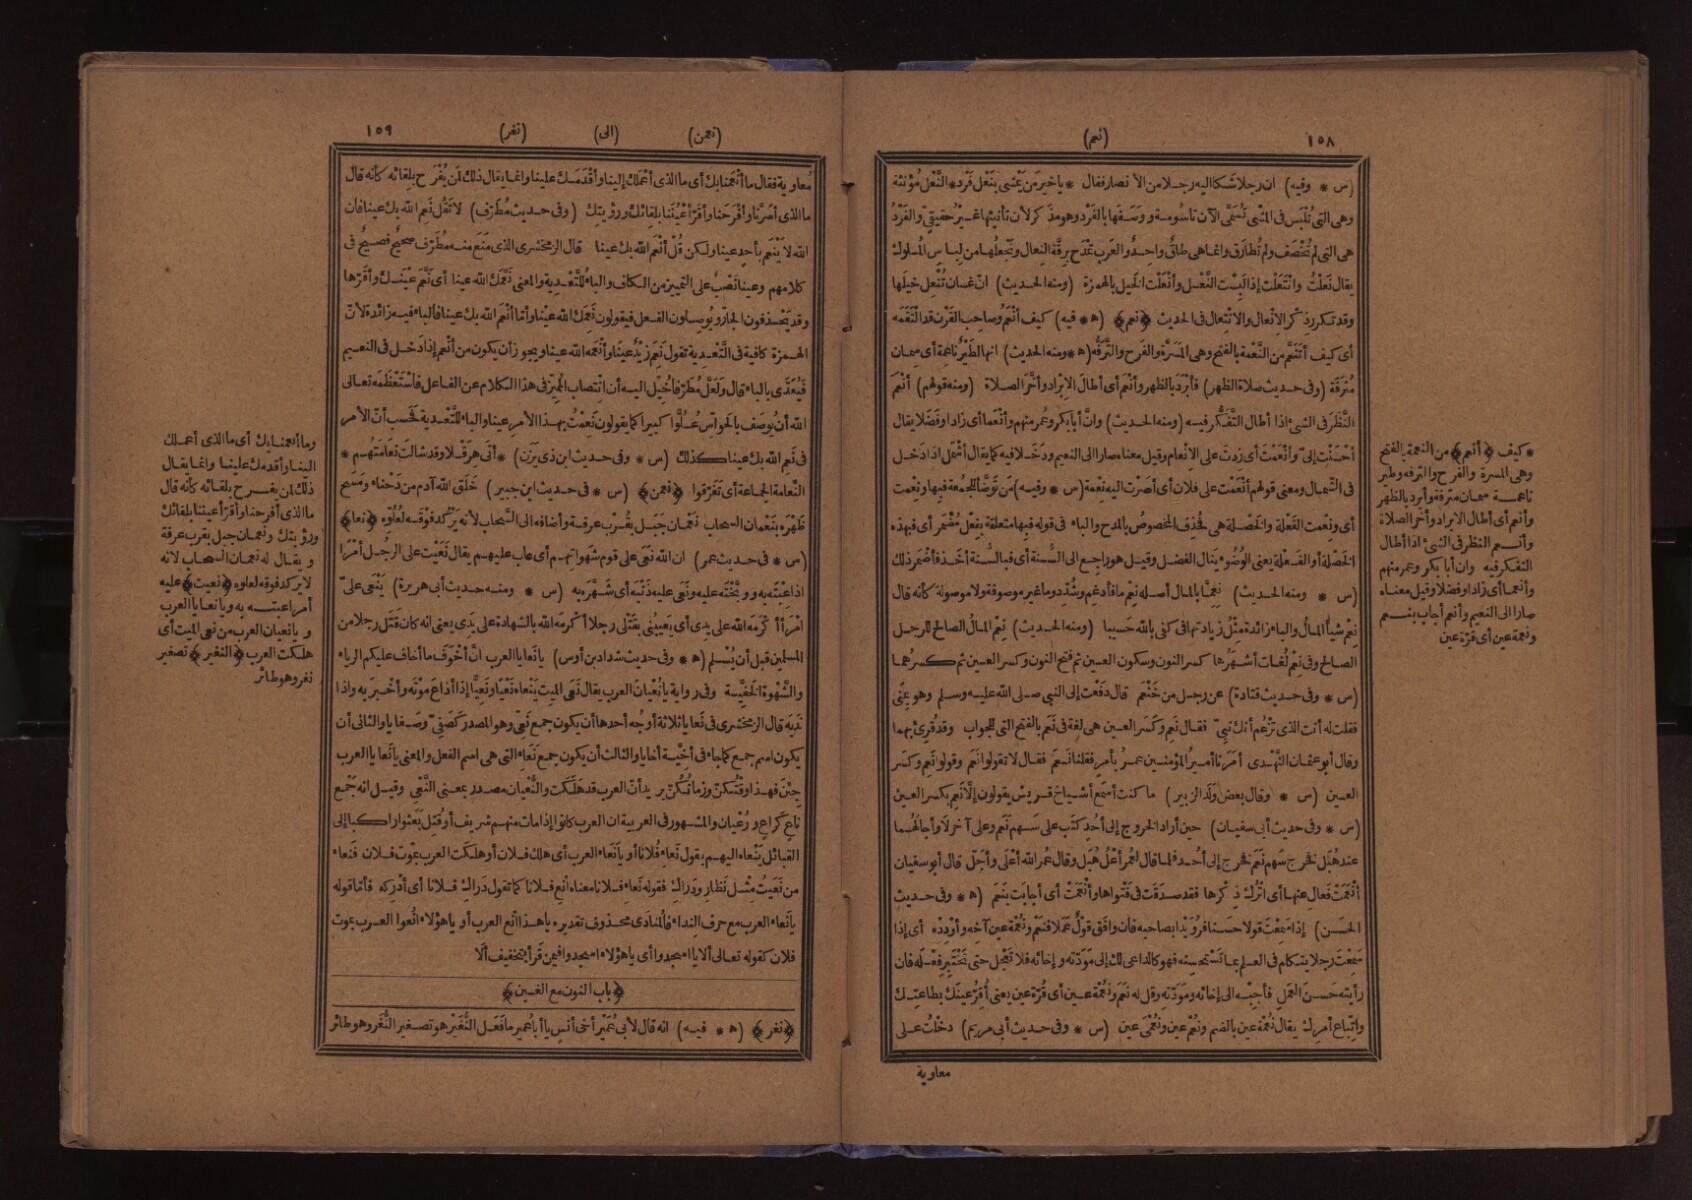 ١٥٨
(نعم)
(س * وفيه) ان رجلا شكا اليه رجلا من الأنصار فقال * يا خير من يمشي بنعل فرد * النعل مؤنثة
وهي التي تلبس في المشي تسمى الآن تاسومة ووصفها بالفرد وهو مذكر لأن تأنيثها غير حقيقي والفرد
هي التي لم تخصف ولم تطارق وانما هي طاق واحد والعرب تمدح برقة النعال وتجعلها من لباس الملوك
يقال نعلت وانتعلت إذا لبست النعل وأنعلت الخيل بالهمزة (ومنه الحديث) ان غسان تنعل خيلها
وقد تكرر ذكر الإنعال والانتعال في الحديث ﴿نعم﴾ (ه * فيه) كيف أنعم وصاحب القرن قد التقمه
أي كيف أتنعم من النعمة بالفتح وهي المسرة والفرح والترفه (ه * ومنه الحديث) انها الطير ناعمة أي سمان
مترفة (وفي حديث صلاة الظهر) فأبرد بالظهر وأنعم أي أطال الابراد وأخر الصلاة (ومنه قولهم) أنعم
النظر في الشئ اذا أطال التفكر فيه (ومنه الحديث) وان أبا بكر وعمر منهم وأنعما أي زادا وفضلا يقال
أحسنت إلي وأنعمت أي زدت على الانعام وقيل معناه صارا الى النعيم ودخلا فيه كما يقال أشمل اذا دخل
في الشمال ومعنى قولهم أنعمت على فلان أي أصرت اليه نعمة (س * وفيه) من توضأ للجمعة فبها ونعمت
أي ونعمت الفعلة والخصلة هي فحذف المخصوص بالمدح والباء في قوله فبها متعلقة بفعل مضمر أي فبهذه
الخصلة أو الفعلة يعني الوضوء ينال الفضل وقيل هو راجع الى السنة أي فبالسنة أخذ فأضمر ذلك
(س * ومنه الحديث) نعما بالمال أصله نعم ما فأدغم وشدد وما غير موصوفة ولا موصولة كأنه قال
نعم شيأ المال والباء زائدة مثل زيادتها في كفى بالله حسيبا (ومنه الحديث) نعم المال الصالح للرجل
الصالح وفي نعم لغات أشهرها كسر النون وسكون العين ثم فتح النون وكسر العين ثم كسرهما
(س * وفي حديث قتادة) عن رجل من خثعم قال دفعت إلى النبي صلى الله عليه وسلم وهو بمنى
فقلت له أنت الذي تزعم أنك نبي فقال نعم وكسر العين هي لغة في نعم بالفتح التي للجواب وقد قرئ بهما
وقال أبو عثمان النهدي أمرنا أمير المؤمنين عمر بأمر فقلنا نعم فقال لا تقولوا نعم وقولوا نعم وكسر
العين (س * وقال بعض ولد الزبير) ما كنت أسمع أشياخ قريش يقولون إلا نعم بكسر العين
(س * وفي حديث أبي سفيان) حين أراد الخروج إلى أحد كتب على سهم نعم وعلى آخر لا وأجالهما
عند هبل فخرج سهم نعم فخرج إلى أحد فلما قال لعمر أعل هبل وقال عمر الله أعلى وأجل قال أبو سفيان
أنعمت فعال عنها أي اترك ذكرها فقد صدقت في فتواها وأنعمت أي أجابت بنعم (ه * وفي حديث
الحسن) إذا سمعت قولا حسنا فرويدا بصاحبه فان وافق قول عملا فنعم ونعمة عين آخه وأودده أي إذا
سمعت رجلا يتكلم في العلم بما تستحسنه فهو كالداعي لك إلى مودته وإخائه فلا تعجل حتى تختبر فعله فان
رأيته حسن العمل فأجبه الى إخائه ومودته وقل له نعم ونعمة عين أي قرة عين يعني أقر عينك بطاعتك
واتباع أمرك يقال نعمة عين بالضم ونعم عين ونعمى عين (س * وفي حديث أبي مريم) دخلت على
معاوية
* كيف ﴿أنعم﴾ من النعمة بالفتح
وهي المسرة والفرح والترفه وطير
ناعمة سمان مترفة وأبرد بالظهر
وأنعم أي أطال الابراد وأخر الصلاة
وأنعم النظر في الشئ اذا أطال
التفكر فيه وان أبا بكر وعمر منهم
وأنعما أي زادا وفضلا وقيل معناه
صارا الى النعيم وأنعم أجاب بنعم
ونعمة عين أي قرة عين
(نعمن) (الى) (نغر)
١٥٩
معاوية فقال ما أنعمنا بك أي ما الذي أعملك إلينا وأقدمك علينا وانما يقال ذلك لمن يفرح بلقائه كأنه قال
ما الذي أسرنا وأفرحنا وأقر أعيننا بلقائك ورؤيتك (وفي حديث مطرف) لا تقل نعم الله بك عينا فان
الله لا ينعم بأحد عينا ولكن قل أنعم الله بك عينا قال الزمخشري الذي منع منه مطرف صحيح فصيح في
كلامهم وعينا نصب على التمييز من الكاف والباء للتعدية والمعنى نعمك الله عينا أي نعم عينك وأقرها
وقد يحذفون الجار ويوصلون الفعل فيقولون نعمك الله عينا وأما أنعم الله بك عينا فالباء فيه زائدة لأن
الهمزة كافية في التعدية تقول نعم زيد عينا وأنعمه الله عينا ويجوز أن يكون من أنعم إذا دخل في النعيم
فيعدى بالباء قال ولعل مطرفا خيل اليه أن انتصاب المميز في هذا الكلام عن الفاعل فاستعظمه تعالى
الله أن يوصف بالحواس علوا كبيرا كما يقولون نعمت بهذا الأمر عينا والباء للتعدية فحسب أن الأمر
في نعم الله بك عينا كذلك (س * وفي حديث ابن ذي يزن) * أتى هرقلا وقد شالت نعامتهم *
النعامة الجماعة أي تفرقوا ﴿نعمن﴾ (س * في حديث ابن جبير) خلق الله آدم من دحناء ومسح
ظهره بنعمان السحاب نعمان جبل بقرب عرفة وأضافه الى السحاب لأنه يركد فوقه لعلوه ﴿نعا﴾
(س * في حديث عمر) ان الله نعى على قوم شهواتهم أي عاب عليهم يقال نعيت على الرجل أمرا
اذا عبته به ووبخته عليه ونعى عليه ذنبه أي شهره به (س * ومنه حديث أبي هريرة) ينعى علي
امرأ أكرمه الله على يدي أي يعيبني بقتلى رجلا أكرمه الله بالشهادة على يدي يعني انه كان قتل رجلا من
المسلمين قبل أن يسلم (ه * وفي حديث شداد بن أوس) يا نعايا العرب ان أخوف ما أخاف عليكم الرياء
والشهوة الخفية وفي رواية يا نعيان العرب يقال نعى الميت ينعاه نعيا ونعيا إذا أذاع موته وأخبر به واذا
ندبه قال الزمخشري في نعايا ثلاثة أوجه أحدها أن يكون جمع نعي وهو المصدر كصفي وصفايا والثاني أن
يكون اسم جمع كما جاء في أخية أخايا والثالث أن يكون جمع نعاء التي هي اسم الفعل والمعنى يا نعايا العرب
جئن فهذا وقتكن وزمانكن يريد أن العرب قد هلكت والنعيان مصدر بمعنى النعي وقيل انه جمع
ناع كراع ورعيان والمشهور في العربية ان العرب كانوا إذا مات منهم شريف أو قتل بعثوا راكبا إلى
القبائل ينعاه اليهم يقول نعاء فلانا أو يا نعاء العرب أي هلك فلان أو هلكت العرب بموت فلان فنعاء
من نعيت مثل نظار ودراك فقوله نعاء فلانا معناه انع فلانا كما تقول دراك فلانا أي أدركه فأما قوله
يا نعاء العرب مع حرف النداء فالمنادى محذوف تقديره يا هذا انع العرب أو يا هؤلاء انعوا العرب بموت
فلان كقوله تعالى ألا يا اسجدوا أي يا هؤلاء اسجدوا فيمن قرأ بتخفيف ألا
﴿باب النون مع الغين﴾
﴿نغر﴾ (ه * فيه) انه قال لأبي عمير أخي أنس يا أبا عمير ما فعل النغير هو تصغير النغر وهو طائر
وما أنعمنا بك أي ما الذي أعملك
الينا وأقدمك علينا وانما يقال
ذلك لمن يفرح بلقائه كأنه قال
ما الذي أفرحنا وأقر أعيننا بلقائك
ورؤيتك ونعمان جبل بقرب عرفة
ويقال له نعمان السحاب لانه
لا يركد فوقه لعلوه ﴿نعيت﴾ عليه
أمرا عبته به ويا نعايا العرب
ويا نعيان العرب من نعى الميت أي
هلكت العرب ﴿النغير﴾ تصغير
نغر وهو طائر